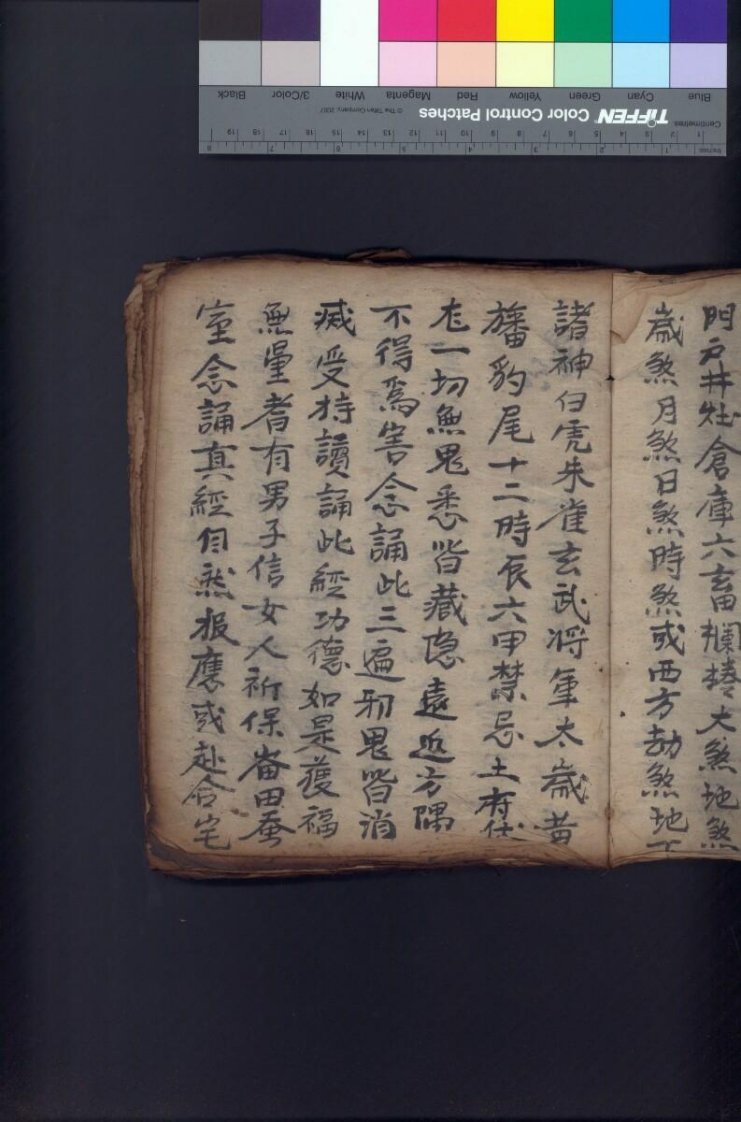 門户井灶倉庫六畜欄棬大煞地煞
歲煞月煞日煞時煞或西方劫煞地下
諸神白虎朱雀玄武將軍太歲黄
旛豹尾十二時辰六甲禁忌土府伏
尨一切無鬼悉皆藏隐遠近方隅
不得爲害念誦此三遍邪鬼皆消
滅受持讀誦此經功德如是獲福
無量者有男子信女人祈保畨田蚕
室念誦真經自然报應或赴合宅
Blue Cyan Green Yellow Red Magenta White 3/Color Black
TIFFEN Color Control Patches © The Tiffen Company, 2007
Centimetres
Inches